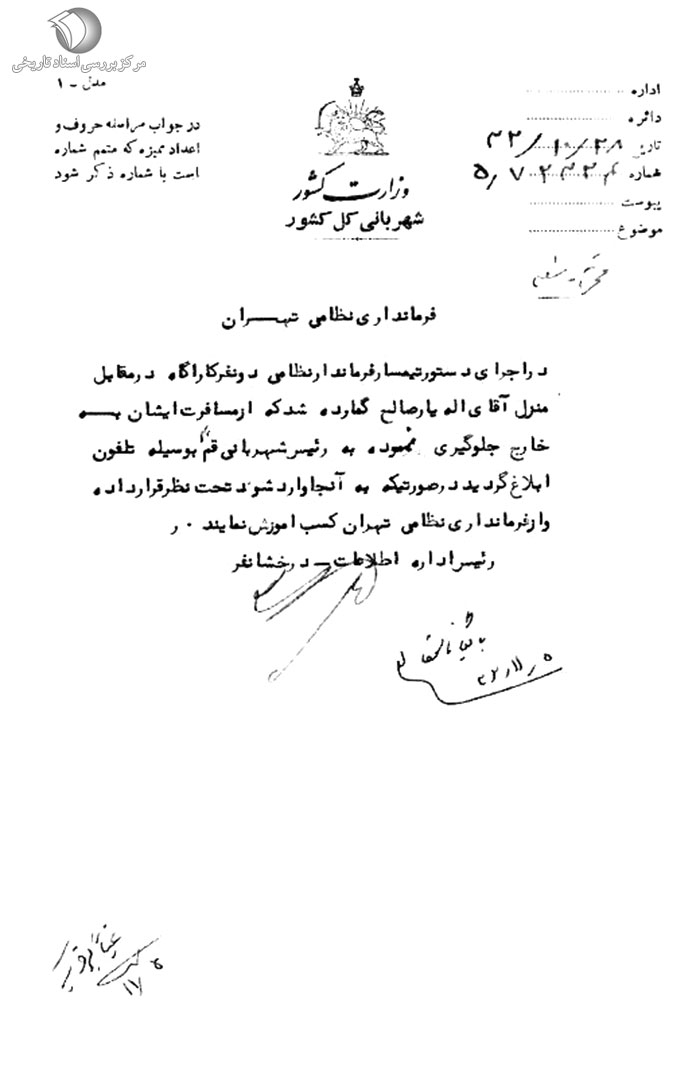 مرکز بررسی اسناد تاریخی
مدل - ۱
در جواب مراسله حروف و
اعداد ممیزه که متمم شماره
است با شماره ذکر شود
وزارت کشور
شهربانی کل کشور
اداره
دائره
تاریخ ۳۲/۱۰/۲۸
شماره
پیوست
موضوع
محرمانه مستقیم
فرمانداری نظامی تهران
در اجرای دستور تیمسار فرماندار نظامی دونفر کارآگاه در مقابل
منزل آقای اله یار صالح گمارده شد که از مسافرت ایشان به
خارج جلوگیری نموده به رئیس شهربانی قم بوسیله تلفون
ابلاغ گردید در صورتیکه به آنجا وارد شوند تحت نظر قرار داده
و از فرمانداری نظامی تهران کسب اموزش نمایند ۰ ر
رئیس اداره اطلاعات - درخشانفر
۳۲/۱۱/۵